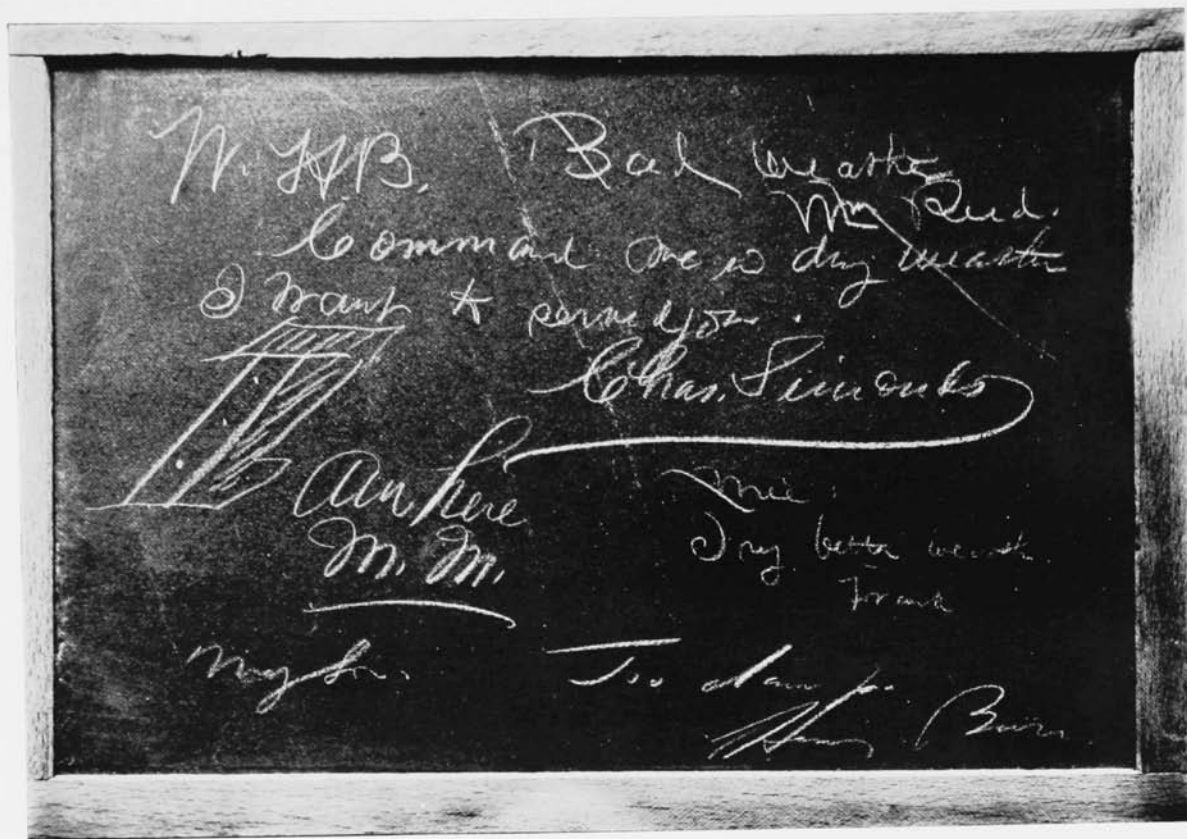 W. H. B.
Bad weather
Wm Reed.
Command me in dry weather
I want to serve you.
Chas. Simonds
Am here
M. M.
Try better weath
Frank
My Son.
Too damp.
Henry